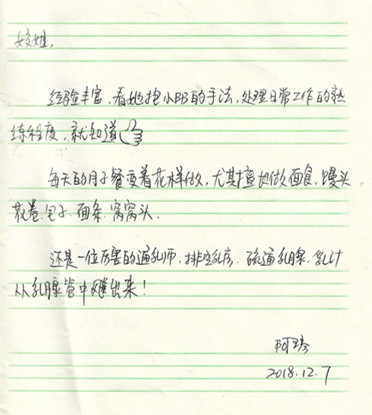 姐,
经验丰富,看她抱小BB的手法,处理日常工作的熟
练程度,就知道
每天的月子餐变着花样做,尤其擅长做面食,馒头
花卷.包子.面条.窝窝头.
还是一位厉害的通乳师,排空乳房.疏通乳腺.乳汁
从乳腺管中喷出来!
阿
2018.12.7